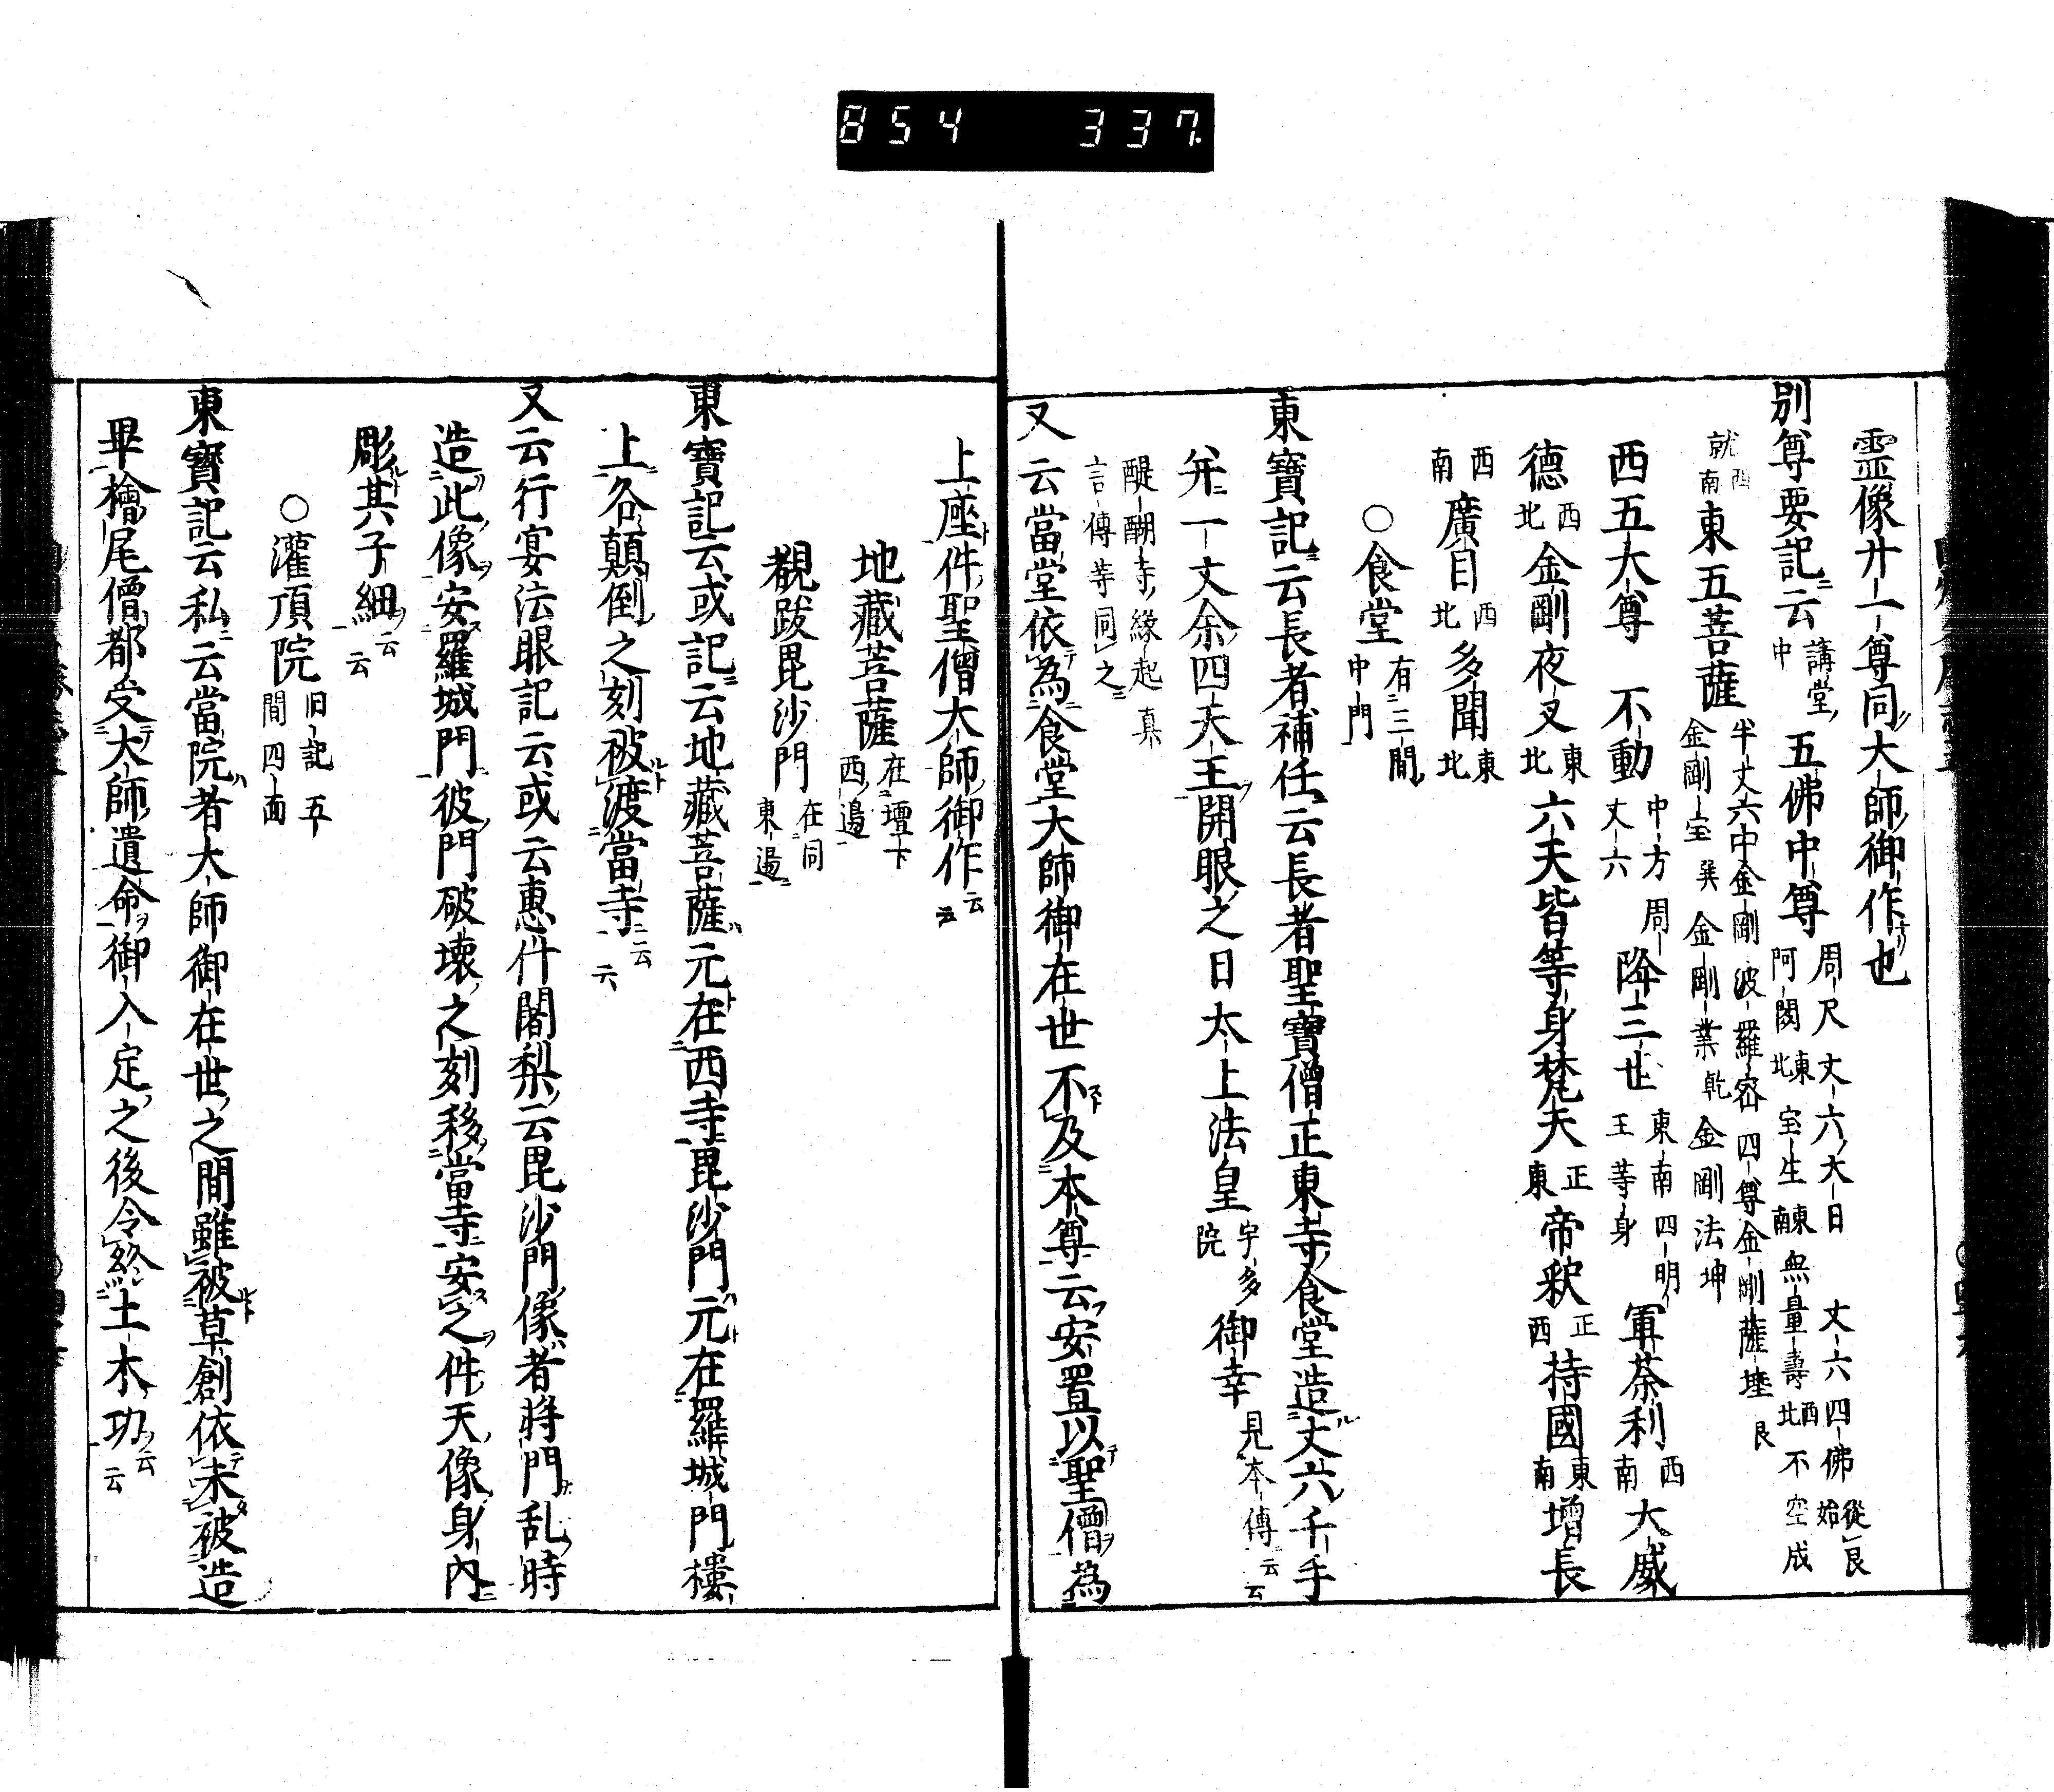 854 337.
霊像廿一尊同大師御作也
別尊要記云講堂中五佛中尊周尺丈六大日丈六四佛從艮始阿閦東北宝生東南無量壽西北不空成
就西南東五菩薩半丈六中金剛波羅密四尊金剛薩埵艮金剛宝巽金剛業乾金剛法坤
西五大尊不動中方周丈六降三世東南四明王等身軍荼利西南大威
德西北金剛夜叉東北六天皆等身梵天正東帝釈正西持國東南增長
西南廣目西北多聞東北
○食堂有三間中門
東寶記云長者補任云長者聖寶僧正東寺食堂造丈六千手
并一丈余四天王開眼之日太上法皇宇多院御幸見本傳云云
醍醐寺緣起真言傳等同之
又云當堂依為食堂大師御在世不及本尊云安置以聖僧為
上座件聖僧大師御作云云
地藏菩薩在壇下西邊
覩跋毘沙門在同東邊
東寶記云或記云地藏菩薩元在西寺毘沙門元在羅城門樓
上各顛倒之刻被渡當寺云云
又云行宴法眼記云或云惠什闍梨云毘沙門像者將門乱時
造此像安羅城門彼門破壊之刻移當寺安之件天像身內
彫其子細云云
○灌頂院旧記五間四面
東寶記云私云當院者大師御在世之間雖被草創依未被造
畢檜尾僧都受大師遺命御入定之後令終土木功云云